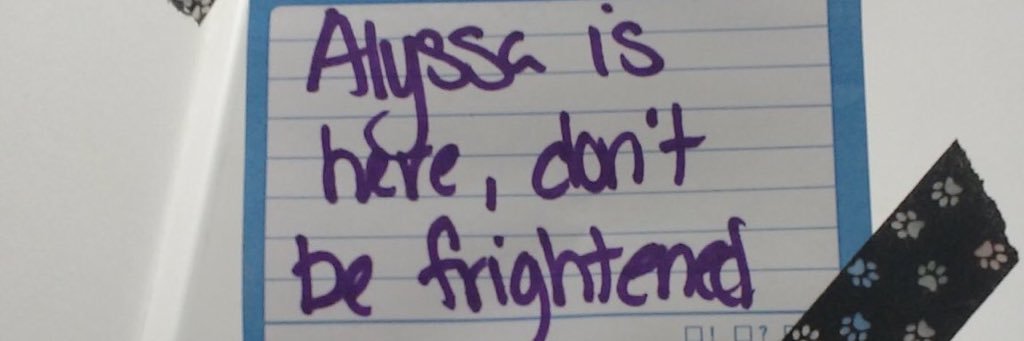 Alyssa is
here, don't
be frightened
□! □? □